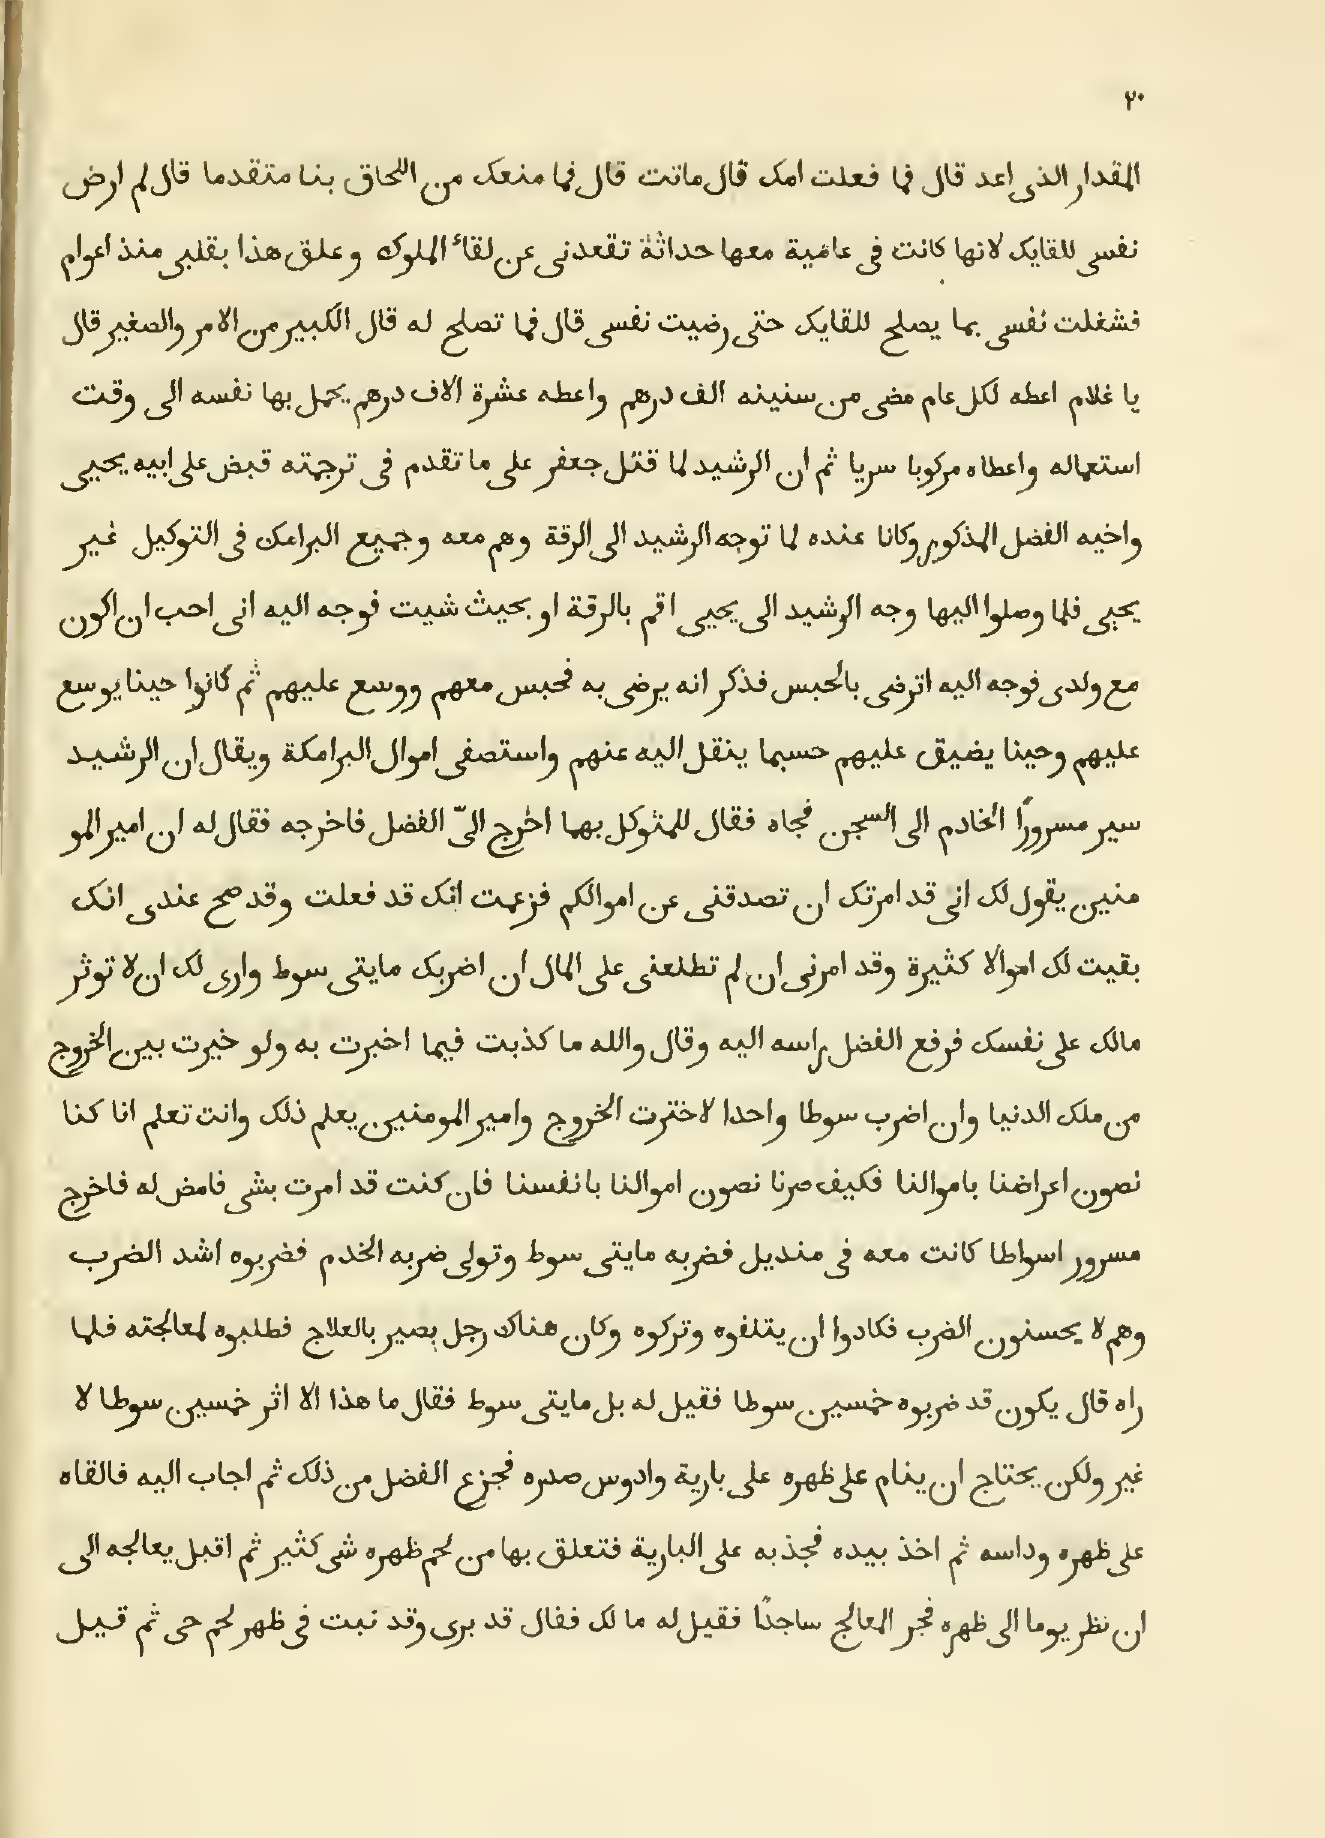 ٢٠
المقدار الذى اعد قال فما فعلت امك قال ماتت قال فما منعك من اللحاق بنا متقدما قال لم ارض
نفسى للقايك لانها كانت فى عامية معها حداثة تقعدنى عن لقاء الملوك وعلق هذا بقلبى منذ اعوام
فشغلت نفسى بما يصلح للقايك حتى رضيت نفسى قال فما تصلح له قال الكبير من الامر والصغير قال
يا غلام اعطه لكل عام مضى من سنينه الف درهم واعطه عشرة الاف درهم يجمل بها نفسه الى وقت
استعماله واعطاه مركوبا سريا ثم ان الرشيد لما قتل جعفر على ما تقدم فى ترجمته قبض على ابيه يحيى
واخيه الفضل المذكور وكانا عنده لما توجه الرشيد الى الرقة وهم معه وجميع البرامك فى التوكيل غير
يحيى فلما وصلوا اليها وجه الرشيد الى يحيى اقم بالرقة او بحيث شيت فوجه اليه انى احب ان اكون
مع ولدى فوجه اليه اترضى بالحبس فذكر انه يرضى به فحبس معهم ووسع عليهم ثم كانوا حينا يوسع
عليهم وحينا يضيق عليهم حسبما ينقل اليه عنهم واستصفى اموال البرامكة ويقال ان الرشيد
سير مسرورًا الخادم الى السجن فجاه فقال للمتوكل بهما اخرج الىّ الفضل فاخرجه فقال له ان امير المو
منين يقول لك انى قد امرتك ان تصدقنى عن اموالكم فزعمت انك قد فعلت وقد صح عندى انك
بقيت لك اموالا كثيرة وقد امرنى ان لم تطلعنى على المال ان اضربك مايتى سوط وارى لك ان لا توثر
مالك على نفسك فرفع الفضل راسه اليه وقال والله ما كذبت فيما اخبرت به ولو خيرت بين الخروج
من ملك الدنيا وان اضرب سوطا واحدا لاخترت الخروج وامير المومنين يعلم ذلك وانت تعلم انا كنا
نصون اعراضنا باموالنا فكيف صرنا نصون اموالنا بانفسنا فان كنت قد امرت بشى فامض له فاخرج
مسرور اسواطا كانت معه فى منديل فضربه مايتى سوط وتولى ضربه الخدم فضربوه اشد الضرب
وهم لا يحسنون الضرب فكادوا ان يتلفوه وتركوه وكان هناك رجل بصير بالعلاج فطلبوه لمعالجته فلما
راه قال يكون قد ضربوه خمسين سوطا فقيل له بل مايتى سوط فقال ما هذا الا اثر خمسين سوطا لا
غير ولكن يحتاج ان ينام على ظهره على بارية وادوس صدره فجزع الفضل من ذلك ثم اجاب اليه فالقاه
على ظهره وداسه ثم اخذ بيده فجذبه على البارية فتعلق بها من لحم ظهره شى كثير ثم اقبل يعالجه الى
ان نظر يوما الى ظهره فخر المعالج ساجدًا فقيل له ما لك فقال قد برى وقد نبت فى ظهر لحم حى ثم قيل